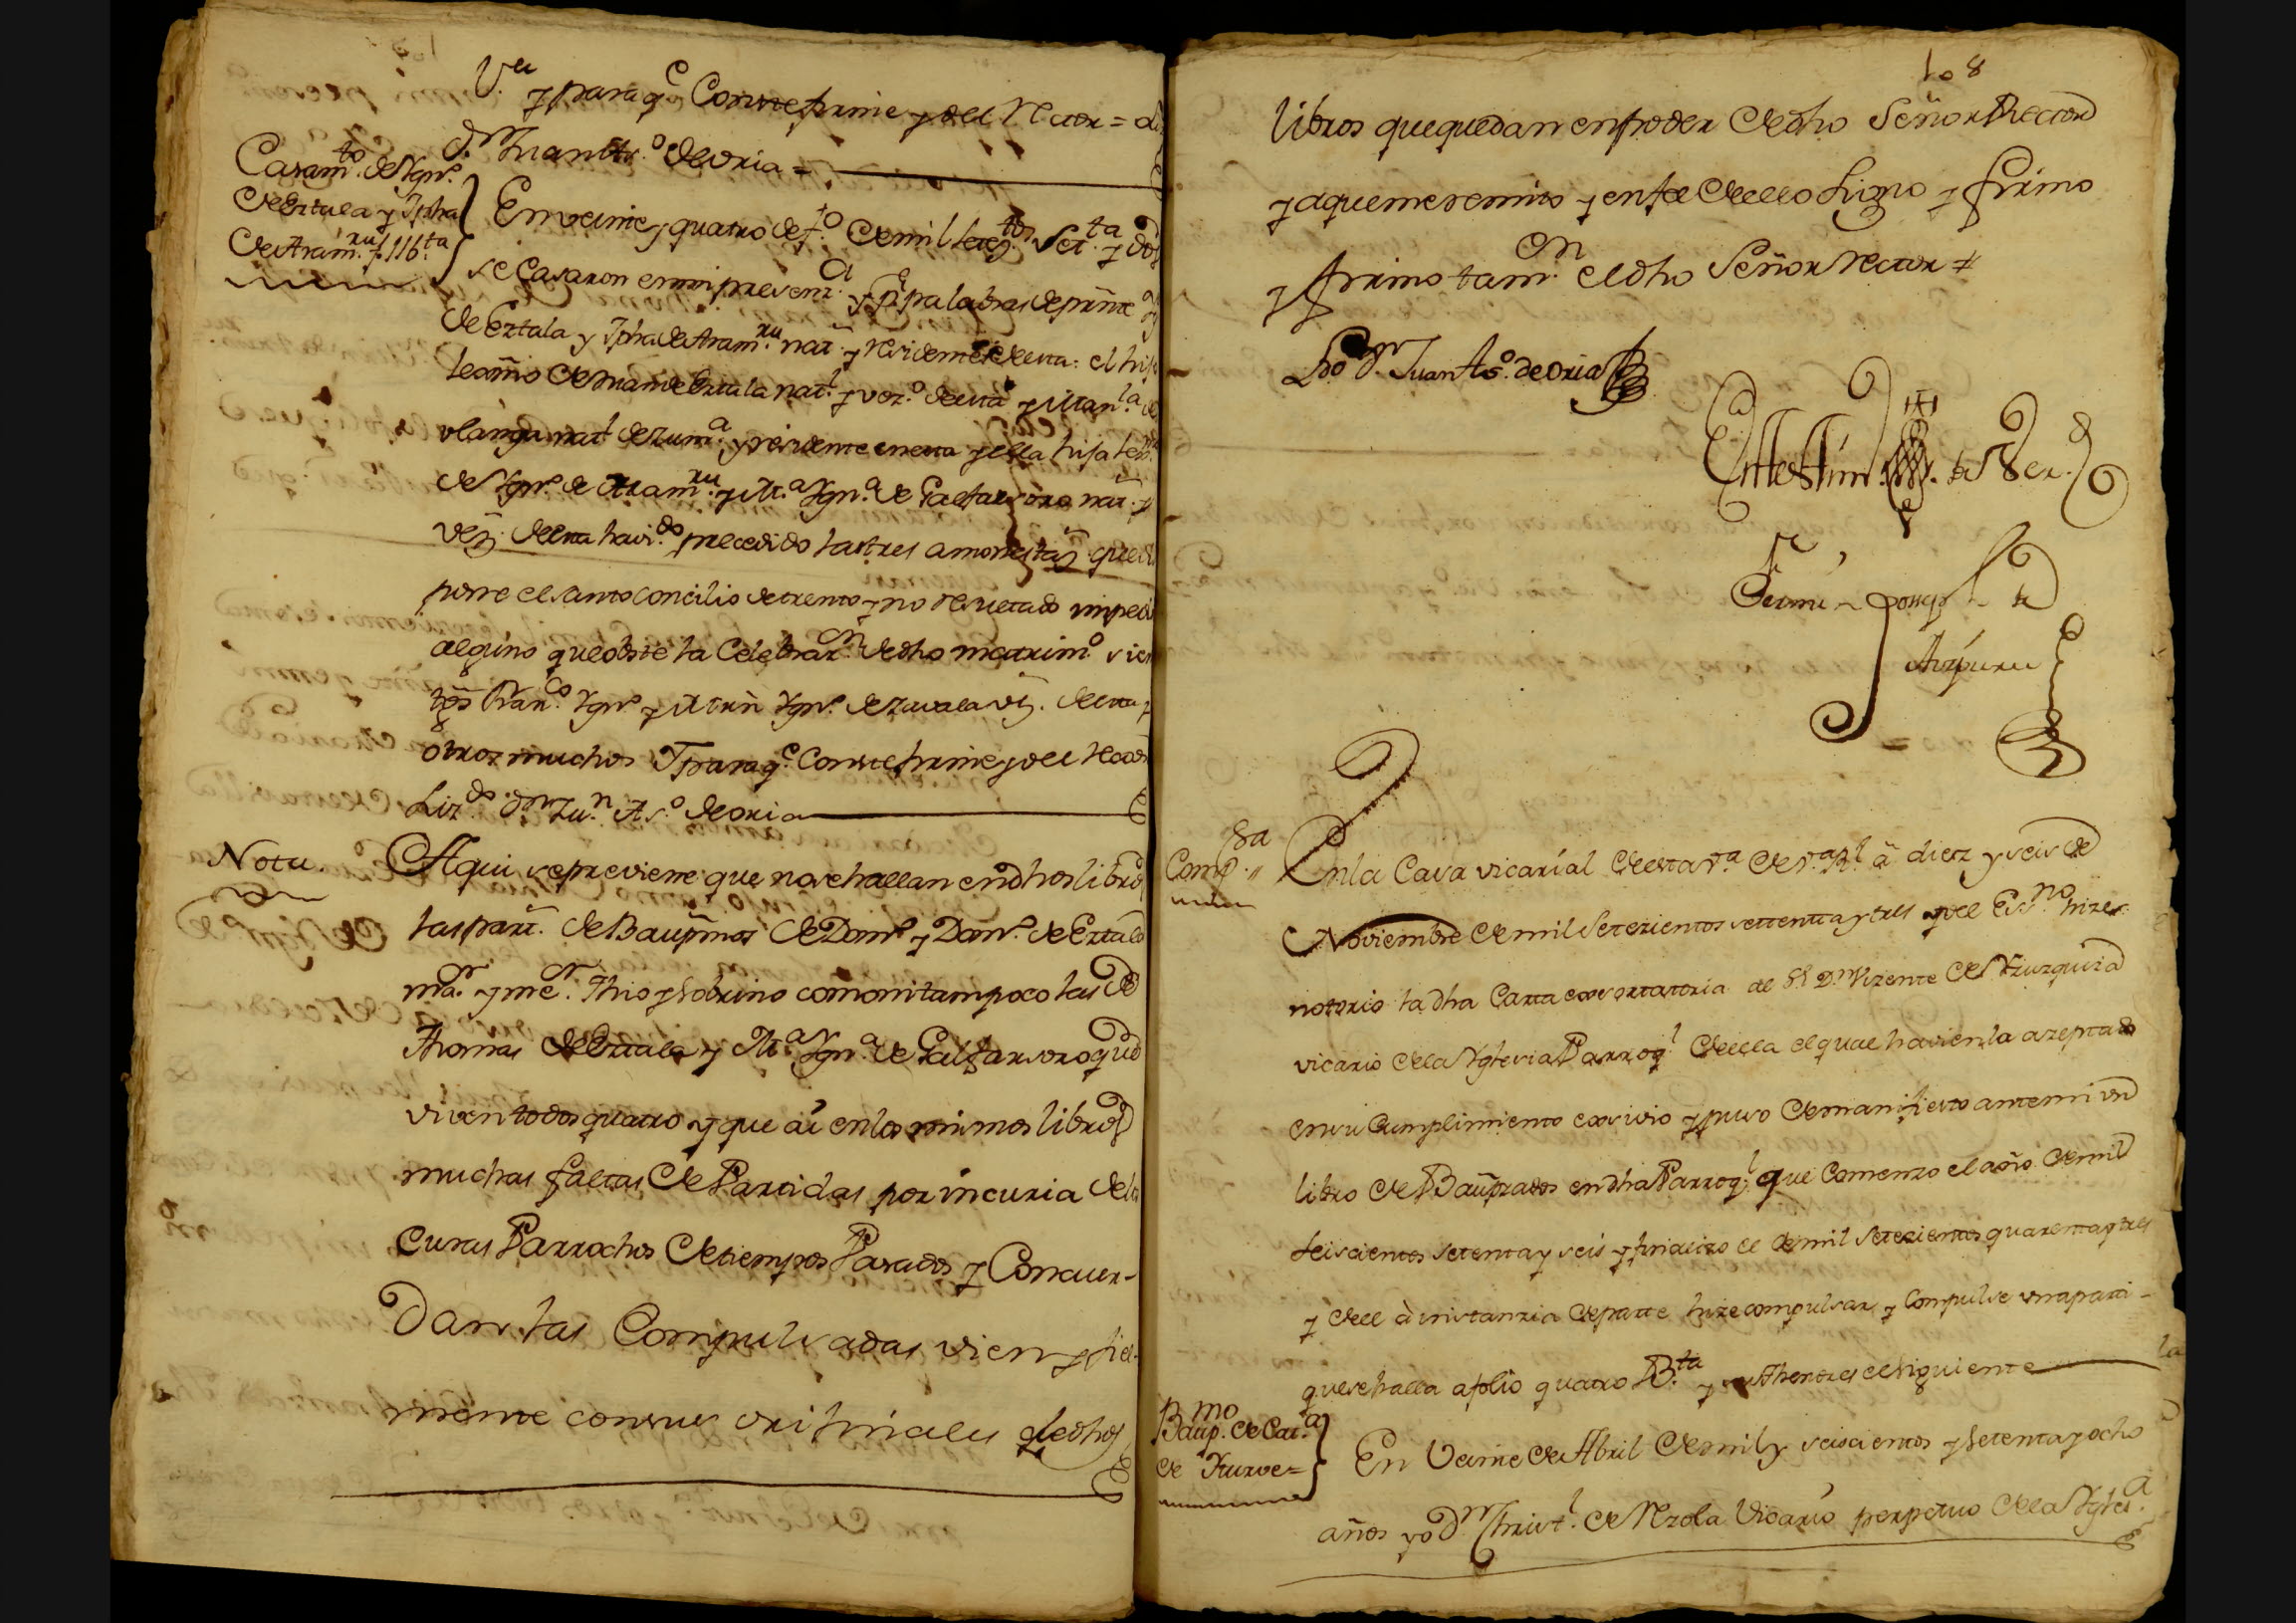 V.ª y para q.e Conste firme yo el Rector =
d.n Juan Ats.º de oria =
Casam.to de Ygn.º
de Ertala y Jpha
de Aram.ru f. 116 b.ta
En veinte y quatro de f.º de mil setez.tos Set.ta y dos
se Casaron en mi presenz.ª y p.r palabras de presnte
de Ertala y Jpha de Aram.ru nat. y residentes de esta: el hijo
lexmo de Juan de Ertala nat.l y vez.º de esta y Man.la de
olangu nat.l de Zum.a y residente en esta y ella hija leg.ma
de Ygn.º de Aram.ru y M.ª Ygn.ª de Galfarsoro nat. y
vez. de esta havi.do precedido las tres amonestaz. que dis
pone el santo concilio de trento y no resultado imped
alguno que obste la Celebraz.on de dho matrim.º sien
tgs Fran.co Ygn.º y Martin Ygn.º de Zavala vz. de esta y
otros muchos Y para q.e Conste firme yo el Rector
Liz.do d.n Ju.n A s.º de oria
Nota.
Aqui se previene que no se hallan en dhos libros
las part. de Baupmos de Dom.º y Dom.º de Ertala
ma.r y me.r Thio y Sobrino como ni tampoco las de
Thomas de Ertala y M.ª Ygn.ª de Galfarsoro que
viven todos quatro y que ai en los mismos libros
muchas faltas de Partidas por incuria de los
Curas Parrochos de tiempos Pasados y Concuer-
dan las Compulsadas vien y fiel-
mente con sus orixinales de dhos
108
libros que quedan en poder de dho Señor Rector
y a que me remito y en fee de ello Signo y firmo
y firmo tam.en el dho Señor Rector =
Ldo d.n Juan Ats.º de oria
En testim.º de Ver.d
Fermin
Aizpuru
Comp.sa
En la Casa vicarial de esta v.ª de V.ª R.l a diez y seis de
Noviembre de mil Setezientos settenta y tres yo el Ess.no hize
notorio la dha Carta exsortatoria al S.r D.n Vizente de Yzuzquiza
vicario de la Yglesia Parroq.l de ella el qual haviendola azeptado
en su Cumplimiento exsivio y puso de manifiesto ante mi un
libro de Baupzados en dha Parroq.l que Comenzo el año de mil
seiscientos setenta y seis y finalizo el de mil setezientos quarenta y tres
y de el à instanzia de parte hize compulsar y Compulse una parti-
da
que se halla a folio quatro B.ta y su thenor es el siguiente
Baup.mo de Cat.ª
de Yturve=
En Veinte de Abril de mil y seiscientos y setenta y ocho
años yo D.n Christ.l de Arzola Vicario perpetuo de la Ygles.ª